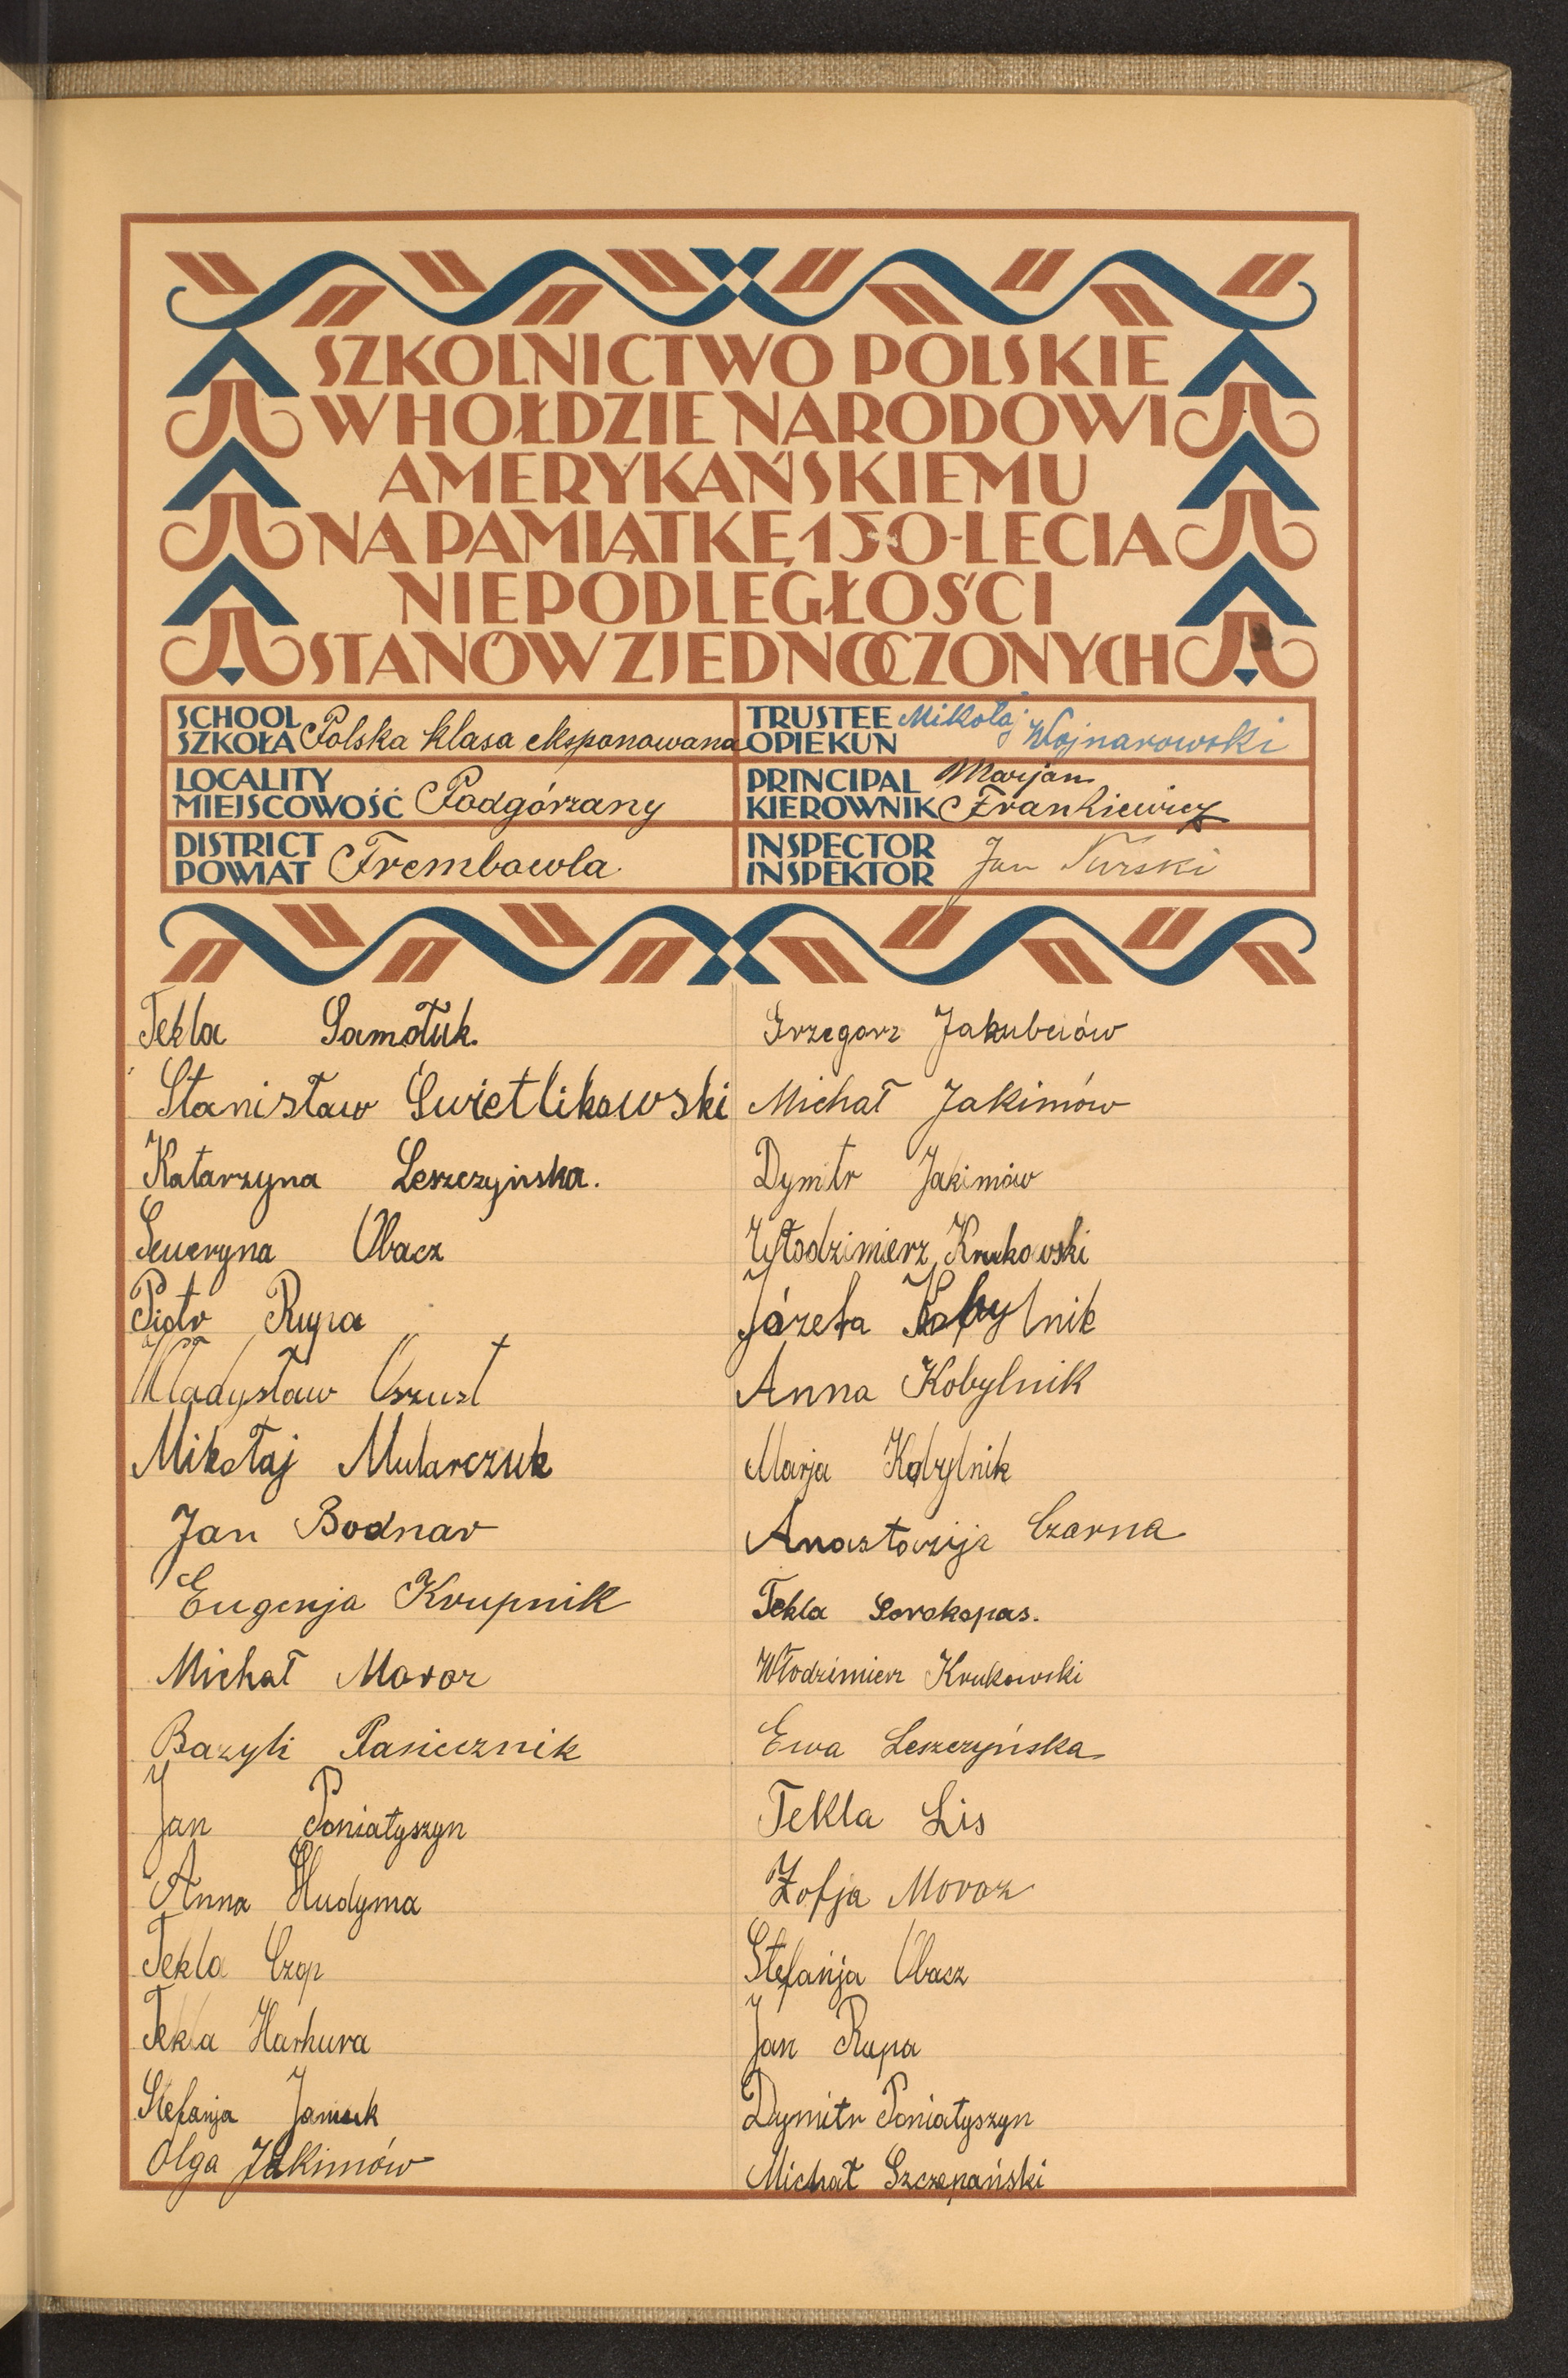 SZKOLNICTWO POLSKIE
W HOŁDZIE NARODOWI
AMERYKAŃSKIEMU
NA PAMIĄTKĘ 150-LECIA
NIEPODLEGŁOŚCI
STANÓW ZJEDNOCZONYCH
SCHOOL
SZKOŁA Polska klasa eksponowana
TRUSTEE
OPIEKUN Mikołaj Wojnarowski
LOCALITY
MIEJSCOWOŚĆ Podgórzany
PRINCIPAL
KIEROWNIK Marjan Frankiewicz
DISTRICT
POWIAT Trembowla
INSPECTOR
INSPEKTOR Jan Turski
Tekla Samołuk.
Stanisław Świetlikowski
Katarzyna Leszczyńska.
Seweryna Ubacz
Piotr Rupa
Władysław Oszust
Mikołaj Mularczuk
Jan Bodnar
Eugenja Krupnik
Michał Moroz
Bazyli Pasiecznik
Jan Poniatyszyn
Anna Hudyma
Tekla Czop
Tekla Harhura
Stefanja
Olga Jakimów
Grzegorz Jakubciów
Michał Jakimów
Dymitr Jakimów
Włodzimierz Krukowski
Józefa Kobylnik
Anna Kobylnik
Marja Kobylnik
Anastazija Czarna
Tekla Sorokopas.
Włodzimierz Krukowski
Ewa Leszczyńska
Tekla Lis
Zofja Moroz
Stefanja Ubacz
Jan Rupa
Dymitr Poniatyszyn
Michał Szczepański